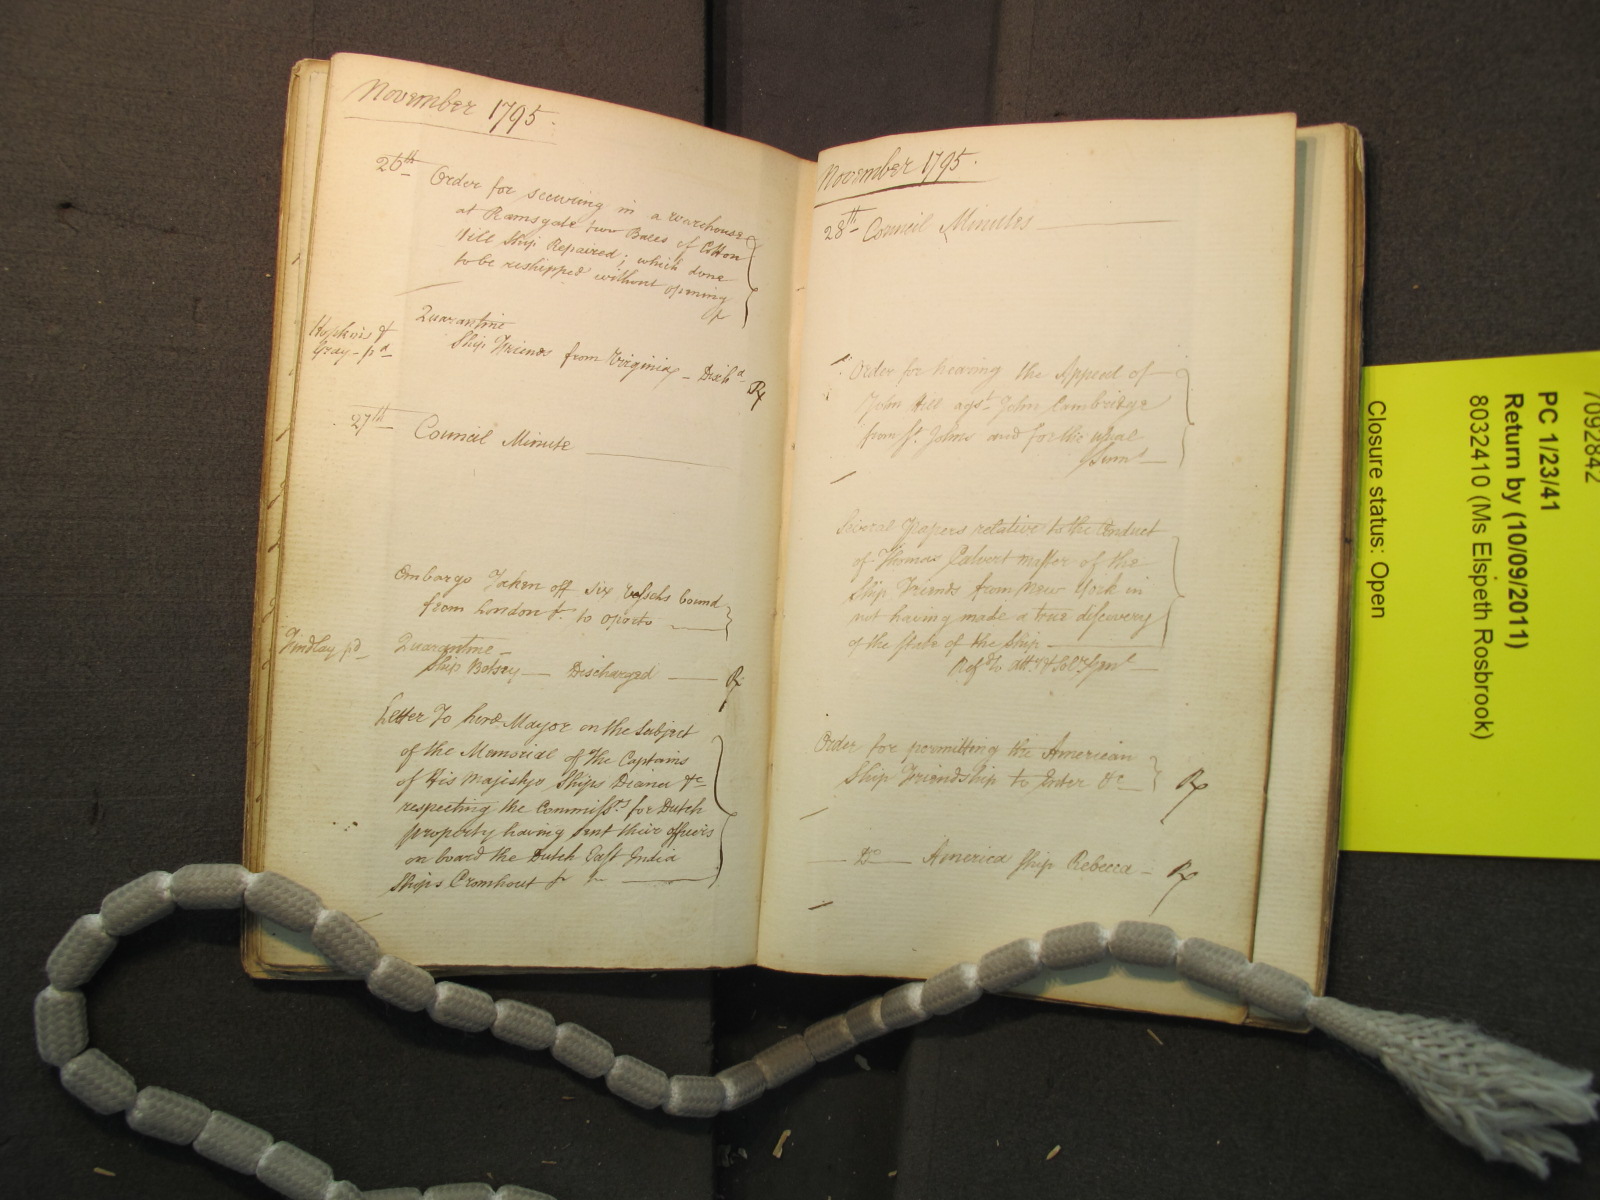 November 1795.
26th Order for securing in a warehouse
at Ramsgate two Bales of Cotton
till Ship Repaired; which done
to be reshipped without opening
Hopkins &
Gray - pd
Quarantine
Ship Friends from Virginia - Disch.d
27th Council Minute
Embargo Taken off six vessels bound
from London to Oporto
Findlay pd
Quarantine
Ship Betsey - Discharged
Letter To Lord Mayor on the Subject
of the Memorial of the Captains
of His Majestys Ships Diana &c
respecting the Commissrs for Dutch
property having sent their officers
on board the Dutch East India
Ships Cromhout
November 1795.
28th Council Minutes
Order for hearing the Appeal of
John Hill agst John Cambridge
from St Johns and for the usual
Several Papers relative to the Conduct
of Thomas Calvert master of the
Ship Friends from New York in
not having made a true discovery
of the state of the ship
Refd to Att. & Sol. Genl
Order for permitting the American
Ship Friendship to Enter &c
Do America Ship Rebecca
7092842
PC 1/23/41
Return by (10/09/2011)
8032410 (Ms Elspeth Rosbrook)
Closure status: Open